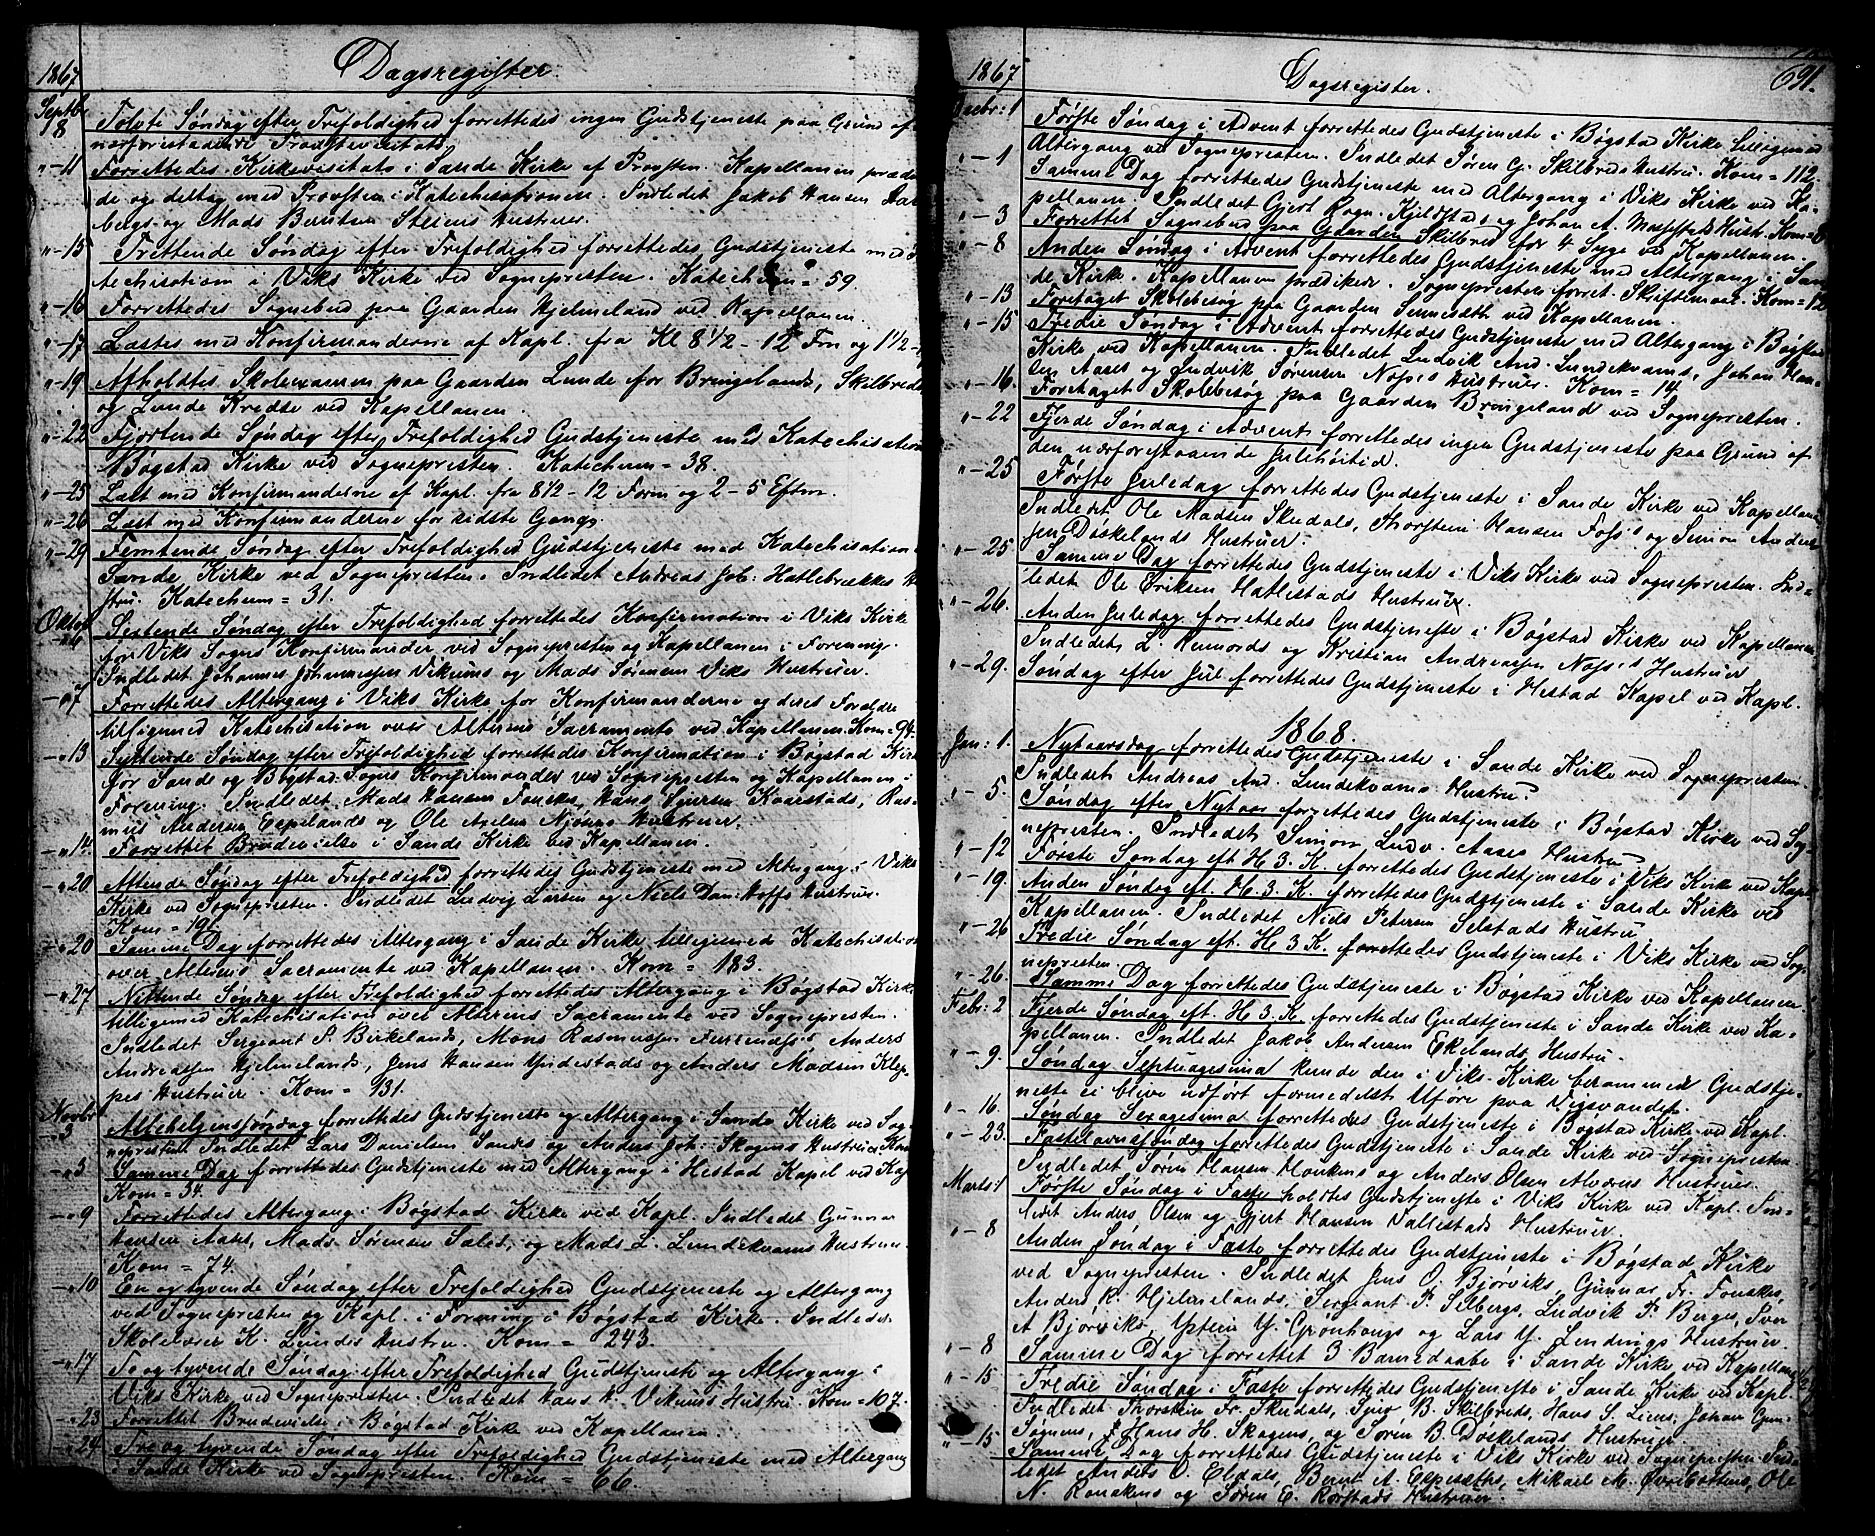 1867
Dagsregister
Septbr
18 Tolvte Søndag efter Trefoldighed forrettedes ingen Gudstjeneste paa Grund af
nærforestaaende Provstevisitats
"-11 Forrettedes Kirkevisitats i Sande Kirke af Provsten. Kapellanen præke-
de og deltog med Provsten i Katechisationen. Indledet Jakob Hansen
bergs og Mads Berntsen Steiens Hustruer.
"-15 Trettende Søndag efter Trefoldighed forrettedes Gudstjeneste med Ka-
techisation i Viks Kirke ved Sognepresten. Katechum = 59.
"-16 Forrettedes Sognebud paa Gaarden Hjelmeland ved Kapellanen.
"-17 Læstes med Konfirmanderne af Kapl. fra Kl 8 1/2 - 12 Fm og 1 1/2 -
"-19 Afholdtes Skoleexamen paa Gaarden Lunde for Bringelands, Skilbreds
og Lunde Kredse ved Kapellanen.
"-22 Fjortende Søndag efter Trefoldighed Gudstjeneste med Katechisation
Bøgstad Kirke ved Sognepresten. Katechum = 38.
"-25 Læst med Konfirmanderne af Kapl. fra 8 1/2 - 12 Form og 2 - 5 Eftm.
"-26 Læst med Konfirmanderne for sidste Gang.
"-29 Femtende Søndag efter Trefoldighed Gudstjeneste med Katechisation
Sande Kirke ved Sognepresten. Indledet Andreas Job: Hatlebrækkes Hu-
stru. Katechum = 31.
Oktob
"6 Sextende Søndag efter Trefoldighed forrettedes Konfirmation i Viks Kirke
for Viks Sogns Konfirmander ved Sognepresten og Kapellanen i Forening.
Indledet Johannes Johannessen Vikums og Mads Sørensen Viks Hustruer.
-"7 Forrettedes Altergang i Viks Kirke for Konfirmanderne og deres Forældre
tilligemed Katechisation over Alterens Sacramente ved Kapellanen. Kom = 94.
-"13 Syttende Søndag efter Trefoldighed forrettedes Konfirmation i Bøgstad Kirke
for Sande og Bøgstad Sogns Konfirmander ved Sognepresten og Kapellanen i
Forening. Indledet Mads Hansen Founkes, Hans Sjursen Kaarstads, Ras-
mus Andersen Espelands og Ole Axelsen Njøsens Hustruer.
-"14 Forrettet Brudevielse i Sande Kirke ved Kapellanen.
-"20 Attende Søndag efter Trefoldighed forrettedes Gudstjeneste med Altergang i Viks
Kirke ved Sognepresten. Indledet Ludvig Larsen og Niels Dan: Hoffs Hustruer.
Kom = 19.
-"20 Samme Dag forrettedes Altergang i Sande Kirke tilligemed Katechisation
over Alterens Sacramente ved Kapellanen. Kom = 183.
-"27 Nittende Søndag efter Trefoldighed forrettedes Altergang i Bøgstad Kirke
tilligemed Katechisation over Alterens Sacramente ved Sognepresten.
Indledet Sergeant P. Birkelands, Mons Rasmussen Furenæs's Anders
Andreassen Hjelmelands, Jens Hansen Yndestads og Anders Madsen Klep-
pes Hustruer. Kom = 131.
Novbr
"3 Allehelgensøndag forrettedes Gudstjeneste og Altergang i Sande Kirke ved Sog-
nepresten Indledet Lars Danielsen Sandes og Anders Joh: Skogens Hustruer Kom
-"3 Samme Dag forrettedes Gudstjeneste med Altergang i Hestad Kapel ved Kap
Kom = 34.
-"9 Forrettedes Altergang i Bøgstad Kirke ved Kapl. Indledet Gunnar
Aases, Mads Sørensen Sæles, og Mads L. Lundekvams Hustruer.
Kom = 74.
-"10 En og tyvende Søndag efter Trefoldighed Gudstjeneste og Altergang
ved Sognepresten og Kapl. i Forening i Bøgstad Kirke. Indledet
Skolelærer K. Lundes Hustru. Kom = 243.
-"17 To og tyvende Søndag efter Trefoldighed Gudstjeneste og Altergang i
Viks Kirke ved Sognepresten. Indledet Hans K. Vikums Hustru. Kom = 107.
-"23 Forrettet Brudevielse i Bøgstad Kirke ved Kapellanen.
-"24 Tre og tyvende Søndag efter Trefoldighed Gudstjeneste med Altergang
Sande Kirke ved Sognepresten. Kom = 66.
1867
Dagsregister.
691.
Decbr: 1 Første Søndag i Advent forrettedes Gudstjeneste i Bøgstad Kirke tilligemed
Altergang ved Sognepresten. Indledet Søren G. Skilbreds Hustru. Kom = 112.
"-1 Samme Dag forrettedes Gudstjeneste med Altergang i Viks Kirke ved Ka-
pellanen. Indledet Gjert Rogn. Kjeldstads og Johan A. Hustr. Kom =
"-3 Forrettet Sognebud paa Gaarden Skilbred for 4 Syge ved Kapellanen.
"-8 Anden Søndag i Advent forrettedes Gudstjeneste med Altergang i San-
de Kirke. Kapellanen prædikede. Sognepresten forret. Skriftemaal. Kom = 12
"-13 Foretaget Skolebesøg paa Gaarden ved Kapellanen.
"-15 Tredie Søndag i Advent forrettedes Gudstjeneste med Altergang i Bøgstad
Kirke ved Kapellanen. Indledet Ludvik And. Lundekvams, Johan Han-
sen Aases og Ludvik Sørensen Nøss's Hustruer. Kom = 14.
"-16. Foretaget Skolebesøg paa Gaarden Bringeland ved Sognepresten.
"-22 Fjerde Søndag i Advent forrettedes ingen Gudstjeneste paa Grund af
den nærforestaaende Julehøitid.
"-25 Første Juledag forrettedes Gudstjeneste i Sande Kirke ved Kapellanen
Indledet Ole Madsen Skudals, Thorstein Hansen Foss's og Simon Anders-
sen Døskelands Hustruer.
"-25 Samme Dag forrettedes Gudstjeneste i Viks Kirke ved Sognepresten. Ind-
ledet Ole Eriksen Hatlestads Hustruer.
"-26. Anden Juledag forrettedes Gudstjeneste i Bøgstad Kirke ved Kapellanen
Indledet L. Humords og Kristian Andreassen Nøss's Hustruer
"-29. Søndag efter Jul forrettedes Gudstjeneste i Hestad Kapel ved Kapl.
1868.
Jan: 1. Nytaarsdag forrettedes Gudstjeneste i Sande Kirke ved Sognepresten
Indledet Andreas And. Lundekvams Hustru.
"-5. Søndag efter Nytaar forrettedes Gudstjeneste i Bøgstad Kirke ved Sog-
nepresten. Indledet Simon Ludv. Aases Hustru
"-12 Første Søndag eft. H. 3. K. forrettedes Gudstjeneste i Viks Kirke ved Kapl.
"-19. Anden Søndag eft. H. 3. K. forrettedes Gudstjeneste i Sande Kirke ved
Kapellanen. Indledet Niels Petersen Selstads Hustru
"-26 Tredie Søndag eft. H 3 K. forrettedes Gudstjeneste i Viks Kirke ved Sog-
nepresten.
"-26. Samme Dag forrettedes Gudstjeneste i Bøgstad Kirke ved Kapellanen
Febr: 2 Fjerde Søndag eft. H. 3. K. forrettedes Gudstjeneste i Sande Kirke ved Ka-
pellanen. Indledet Jakob Andersen Ekelands Hustru.
"-9. Søndag Septuagesima kunde den i Viks Kirke berammede Gudstje-
neste ei blive udført formedelst Uføre paa Vigsvandet.
"-16. Søndag Sexagesima forrettedes Gudstjeneste i Bøgstad Kirke ved Kapl.
"-23. Fastelavnssøndag forrettedes Gudstjeneste i Sande Kirke ved Sognepresten.
Indledet Søren Hansen Haukens og Anders Olsen Alværas Hustruer.
Marts: 1 Første Søndag i Faste holdtes Gudstjeneste i Viks Kirke ved Kapl. Ind-
ledet Anders Olsen og Gjert Hansen Vallestads Hustruer.
"-8 Anden Søndag i Faste forrettedes Gudstjeneste i Bøgstad Kirke
ved Sognepresten. Indledet Jens O. Bjørviks, Gunnar Fr. Founkes,
Anders R. Hjelmelands, Sergeant P. Selbergs, Ludvik P. Berges, Sver
A Bjørviks, Ystein Y. Grønhaugs og Lars Y. Lendings Hustruer.
"-8 Samme Dag forrettet 3 Barnedaabe i Sande Kirke ved Kapellanen
"-15 Tredie Søndag i Faste forrettedes Gudstjeneste i Sande Kirke ved Kapl.
Indledet Thorstein Fr. Skudals, Sjur B. Skilbreds, Hans S. Liens, Johan Gun.
Søgnens, Hans H. Skogens, og Søren B. Døskelands Hustruer
"-15 Samme Dag forrettedes Gudstjeneste i Viks Kirke ved Sognepresten Ind-
ledet Anders O. Eldals, Bernt A. Espesæths, Mikael M. Øvrebottens, Ole
N. Rønakens og Søren E. Rørstads Hustruer.